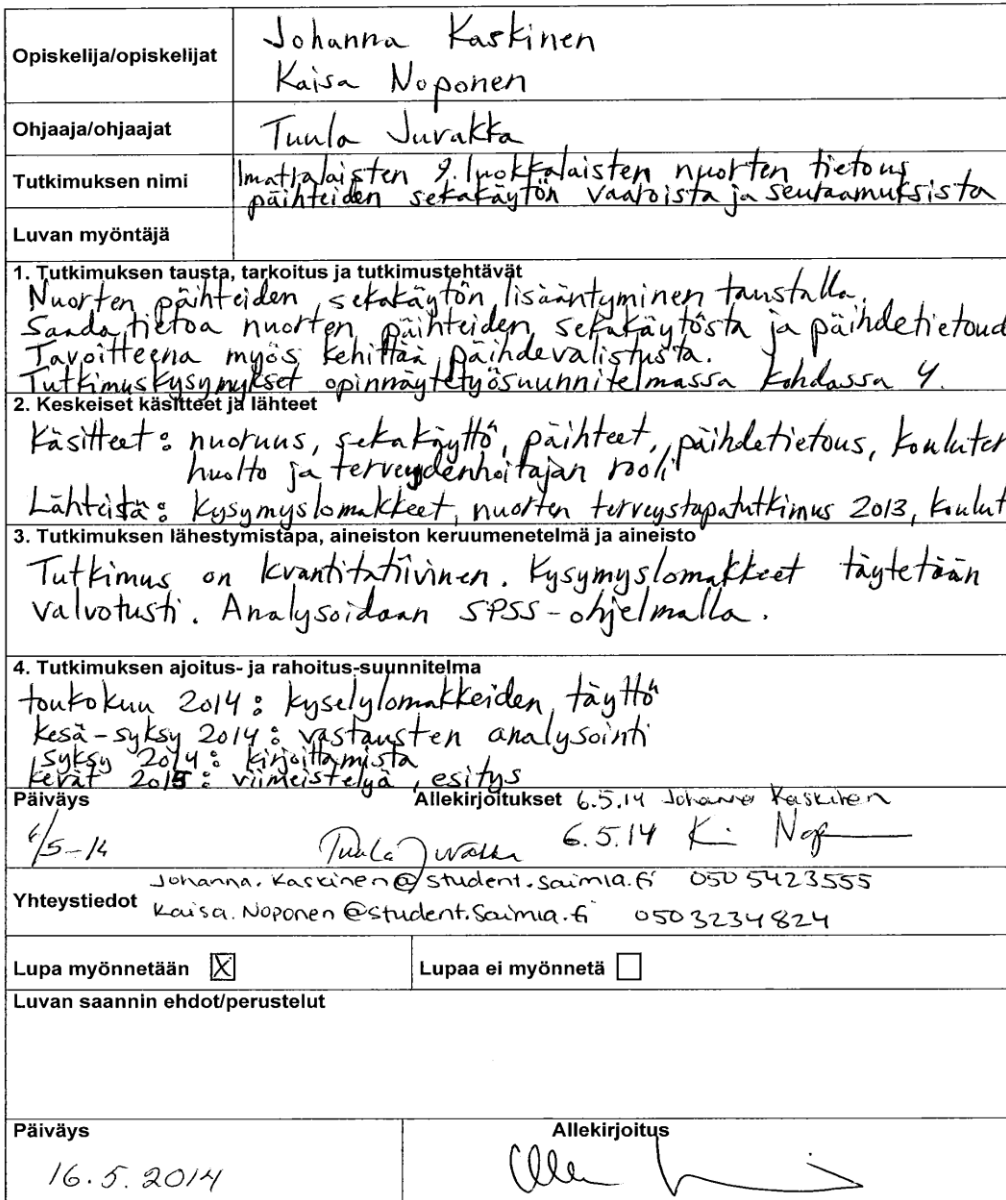 Opiskelija/opiskelijat
Johanna Kaskinen
Kaisa Noponen
Ohjaaja/ohjaajat
Tuula Juvakka
Tutkimuksen nimi
Imatralaisten 9. luokkalaisten nuorten tietous
päihteiden sekakäytön vaaroista ja seuraamuksista
Luvan myöntäjä
1. Tutkimuksen tausta, tarkoitus ja tutkimustehtävät
Nuorten päihteiden sekakäytön lisääntyminen taustalla.
Saada tietoa nuorten päihteiden sekakäytöstä ja päihdetietoud
Tavoitteena myös kehittää päihdevalistusta.
Tutkimuskysymykset opinnäytetyösuunnitelmassa kohdassa 4.
2. Keskeiset käsitteet ja lähteet
Käsitteet: nuoruus, sekakäyttö, päihteet, päihdetietous, kouluter
huolto ja terveydenhoitajan rooli
Lähteitä: kysymyslomakkeet, nuorten terveystapatutkimus 2013, koulut
3. Tutkimuksen lähestymistapa, aineiston keruumenetelmä ja aineisto
Tutkimus on kvantitatiivinen. Kysymyslomakkeet täytetään
valvotusti. Analysoidaan SPSS-ohjelmalla.
4. Tutkimuksen ajoitus- ja rahoitus-suunnitelma
toukokuu 2014: kyselylomakkeiden täyttö
kesä-syksy 2014: vastausten analysointi
syksy 2014: kirjoittamista
kevät 2015: viimeistelyä, esitys
Päiväys
Allekirjoitukset 6.5.14 Johanna Kaskinen
6/5-14 Tuula Juvakka 6.5.14
Johanna.Kaskinen@student.saimia.fi 050 5423555
Yhteystiedot Kaisa.Noponen@student.saimia.fi 050 3234824
Lupa myönnetään X Lupaa ei myönnetä
Luvan saannin ehdot/perustelut
Päiväys Allekirjoitus
16.5.2014